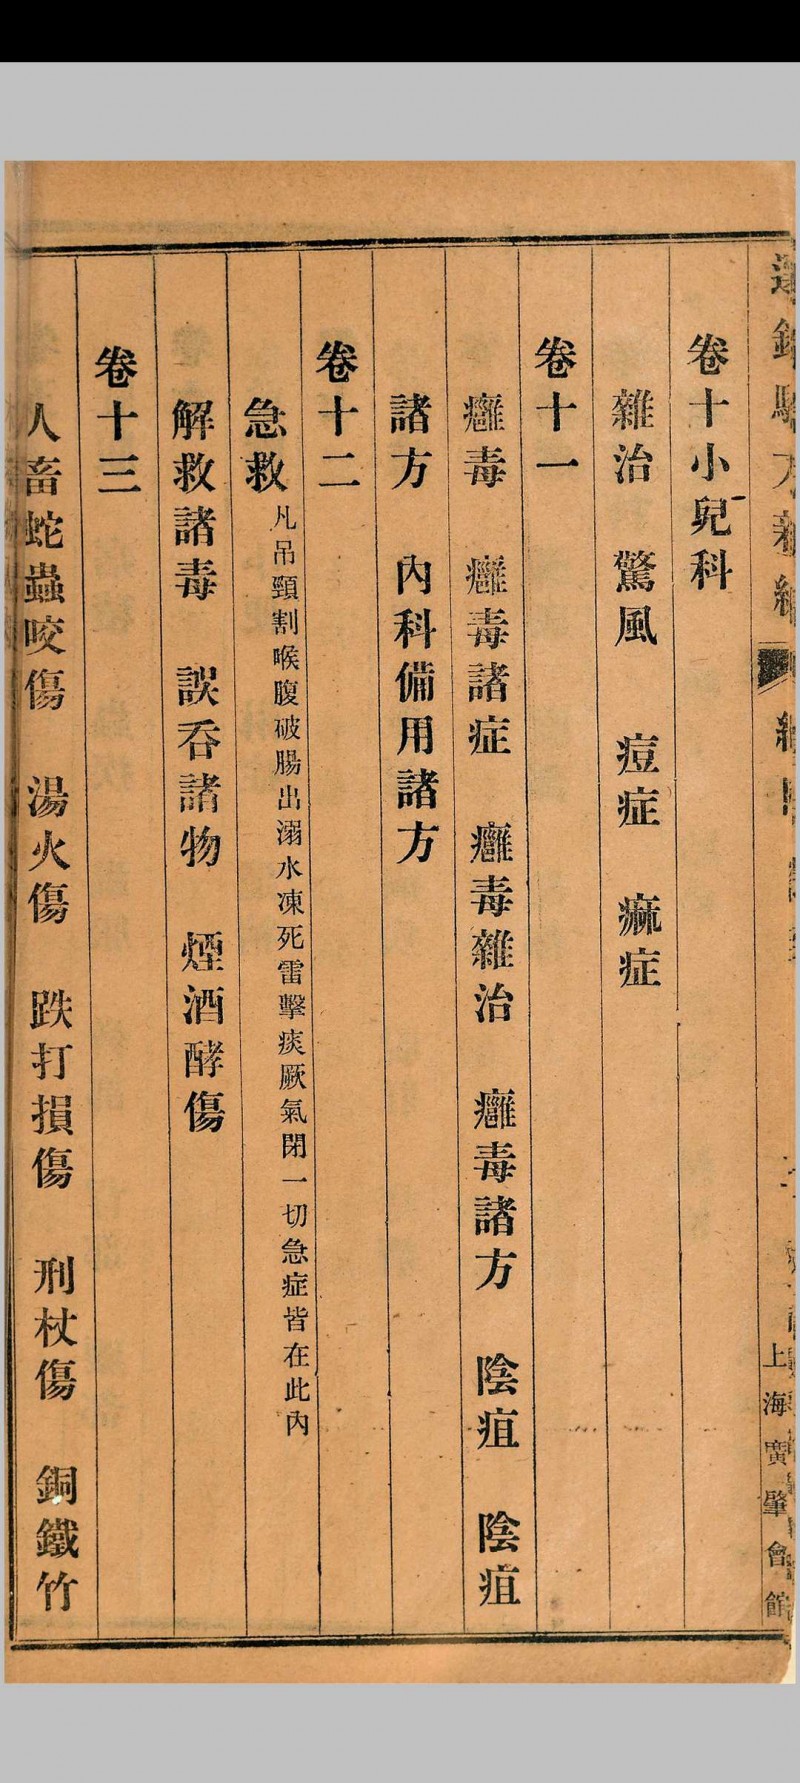 卷十小兒科
雜治　驚風　痘症　痲症
卷十一
癰毒　癰毒諸症　癰毒雜治　癰毒諸方　陰疽　陰疽
諸方　內科備用諸方
卷十二
急救凡吊頸割喉腹破腸出溺水凍死雷擊痰厥氣閉一切急症皆在此內
解救諸毒　誤吞諸物　煙酒酵傷
卷十三
人畜蛇蟲咬傷　湯火傷　跌打損傷　刑杖傷　銅鐵竹
上海廣肇會館